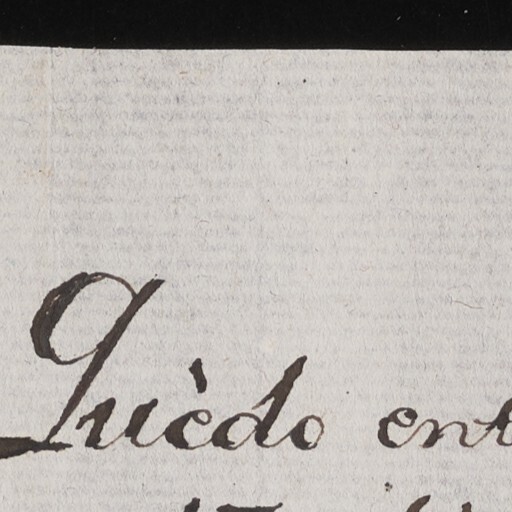 Quèdo ent